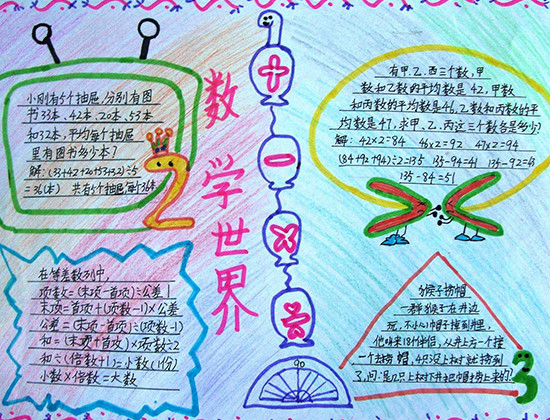 数学世界
小刚有5个抽屉,分别有图
书33本、42本、20本、53本
和32本,平均每个抽屉
里有图书多少本?
解:(33+42+20+53+32)÷5
=36(本) 共有5个抽屉每个36本
2
有甲、乙、丙三个数,甲
数和乙数的平均数是42,甲数
和丙数的平均数是46,乙数和丙数的平
均数是47,求甲、乙、丙这三个数各是多少?
解:42×2=84 46×2=92 47×2=94
(84+92+94)÷2=135 135-94=41 135-92=43
135-84=51
在等差数列中,
项数=(末项-首项)÷公差+1
末项=首项+(项数-1)×公差
公差=(末项-首项)÷(项数-1)
和=(末项+首项)×项数÷2
和÷(倍数+1)=小数(1份)
小数×倍数=大数
90
猴子捞帽
一群猴子在井边
玩,不小心帽子掉到井里,
他喊来18个伴侣,从井上方一个接
一个去捞帽,4只没上树就捞到
了,问:是几只上树下井把帽子捞上来的?
3